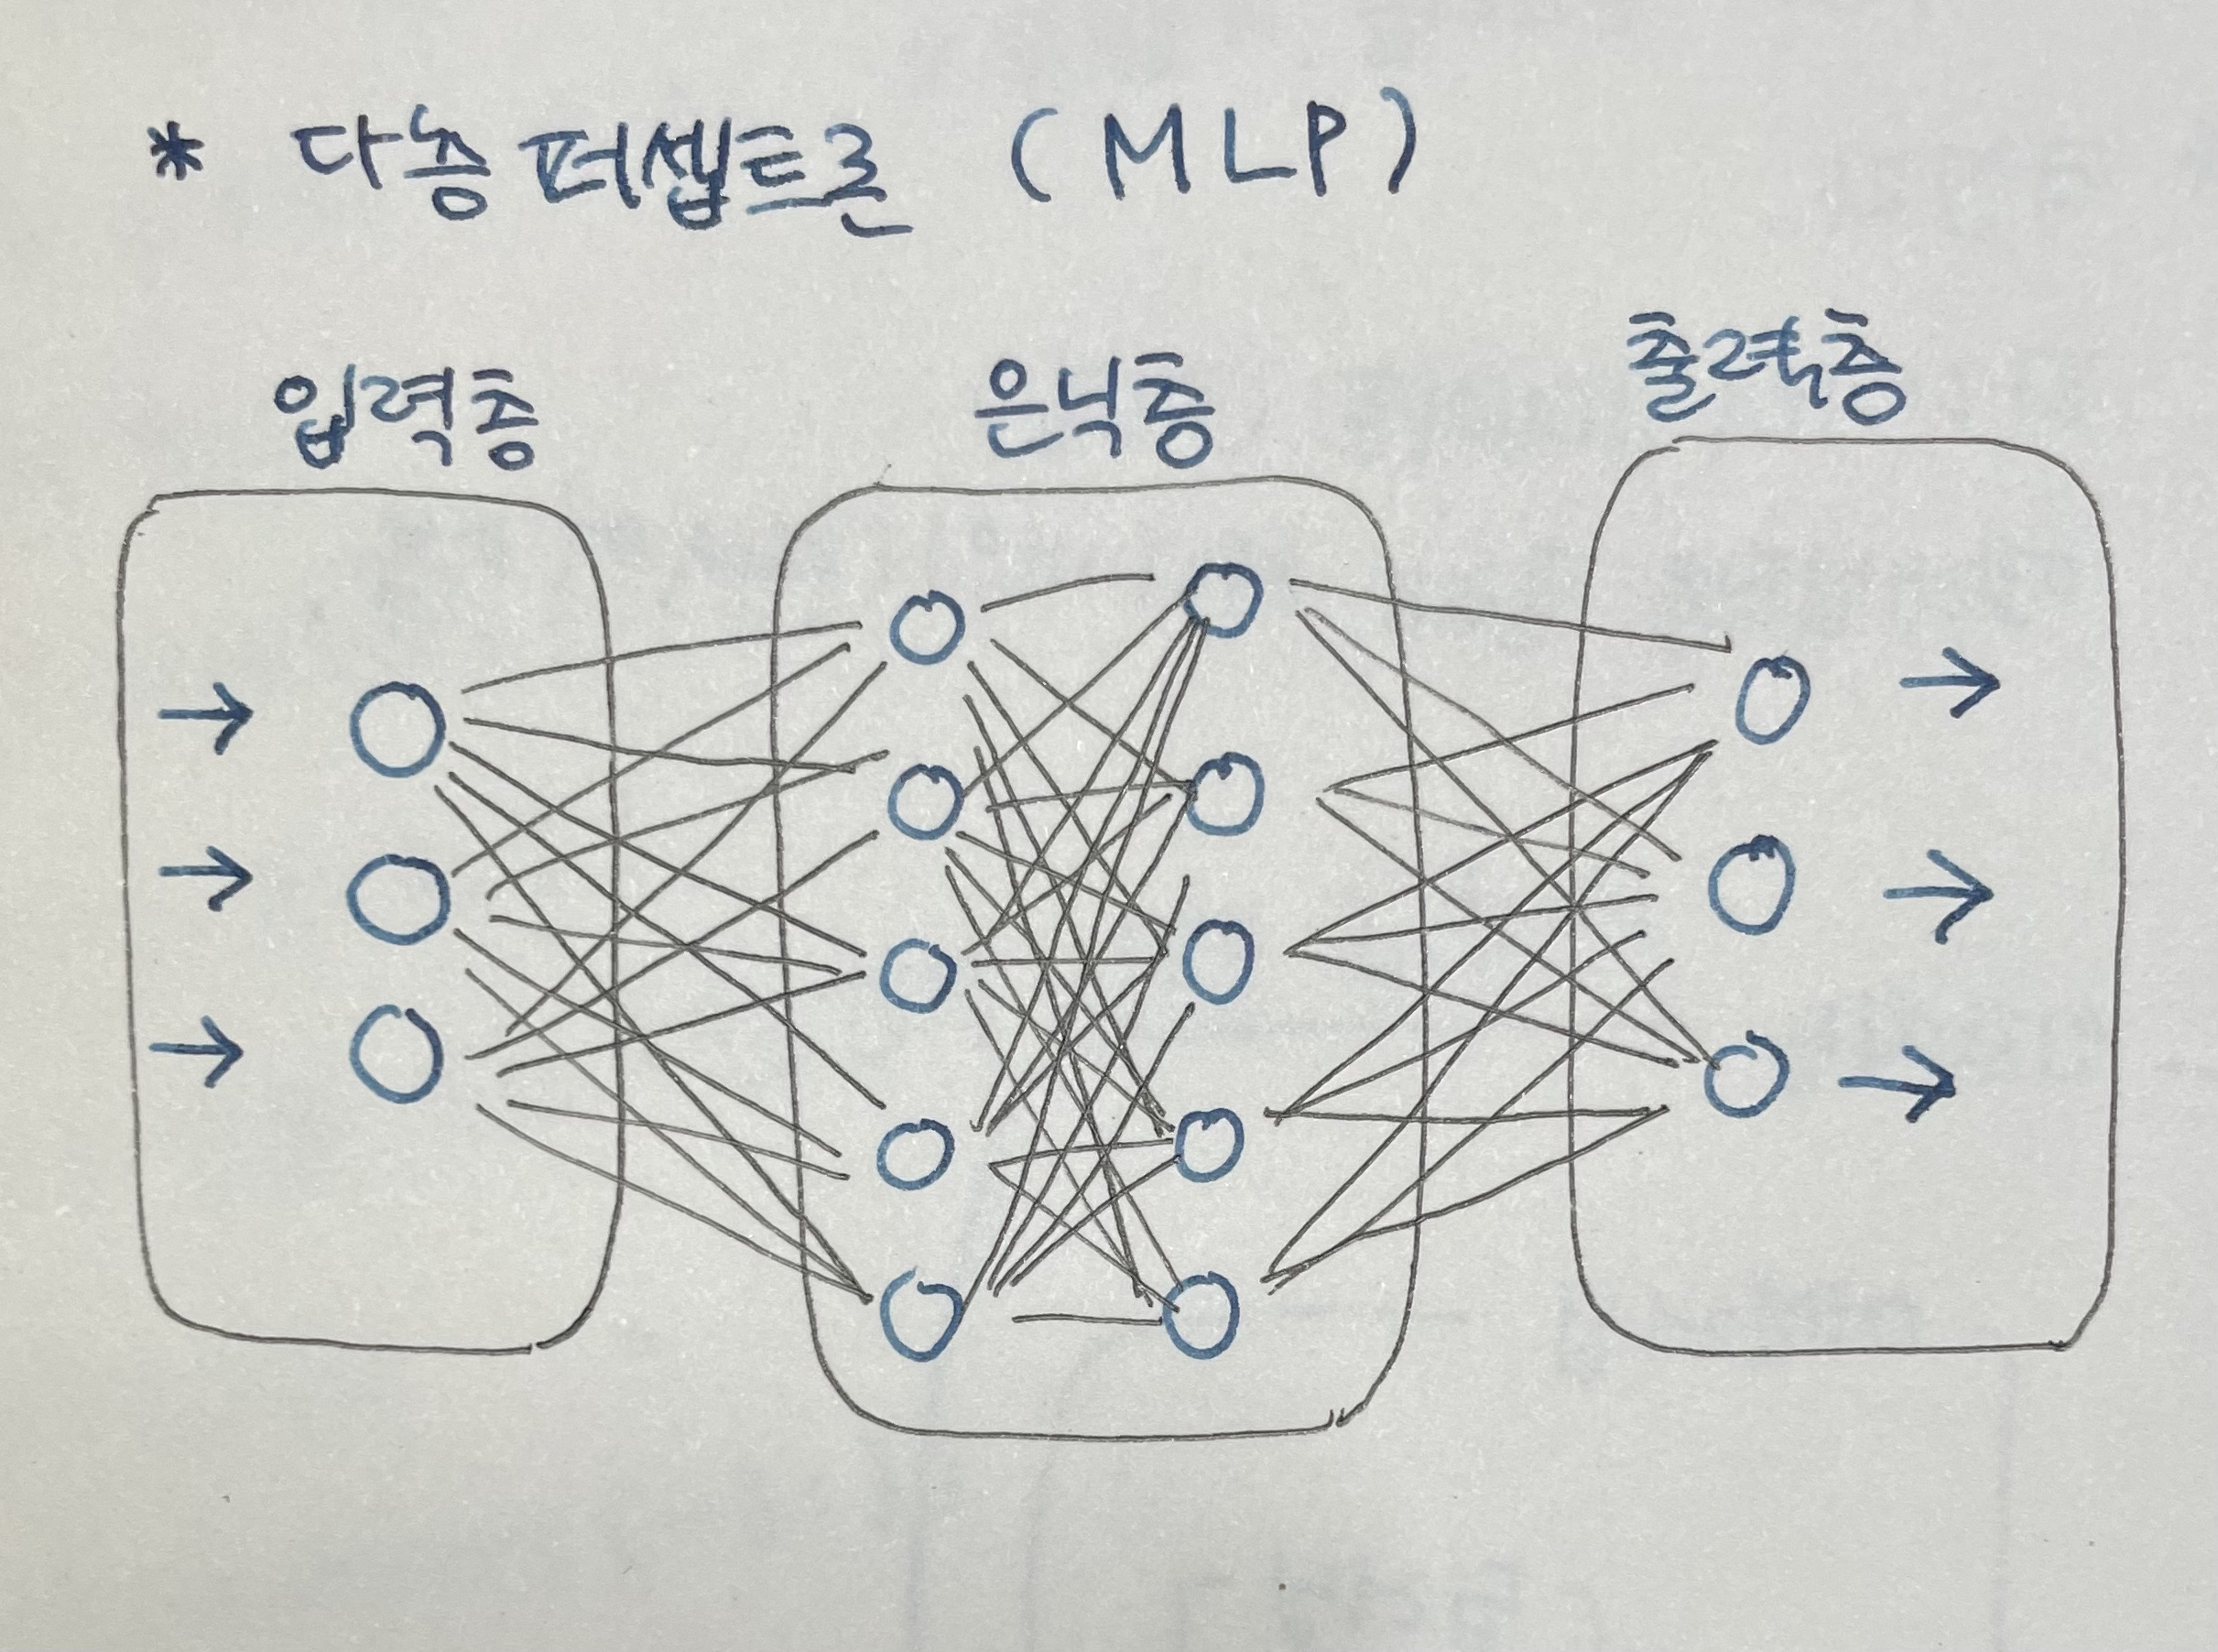 * 다층 퍼셉트론 (MLP)
입력층 은닉층 출력층